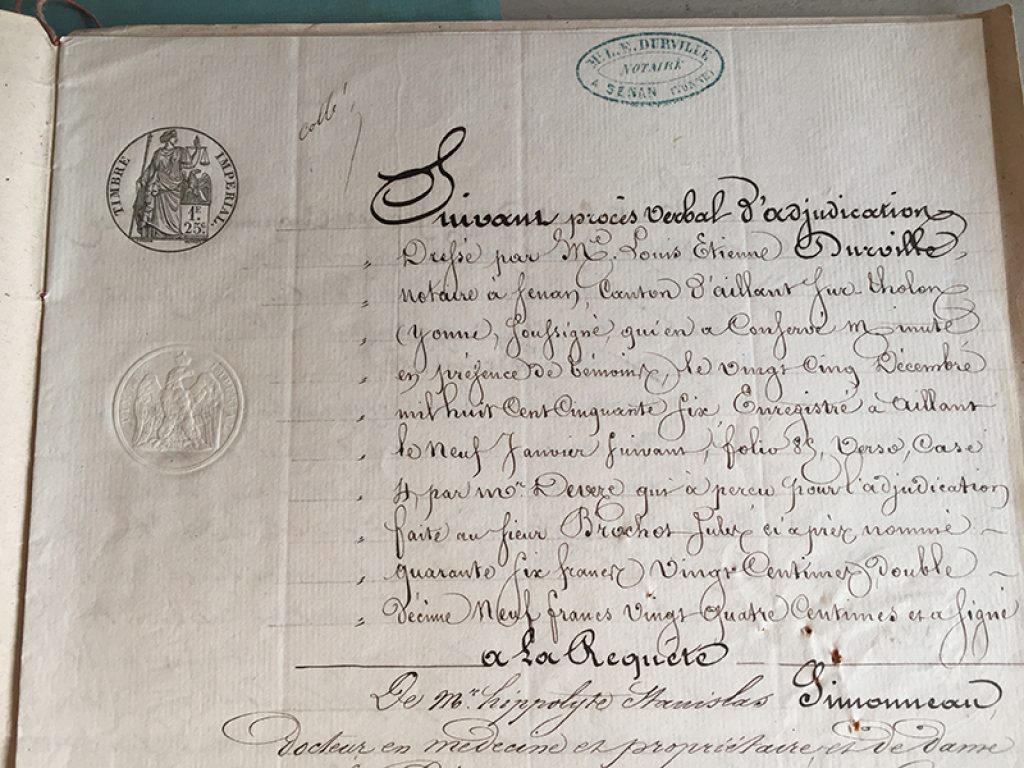 Mc. L. E. DURVILLE
NOTAIRE
A SENAN (YONNE)
collé
TIMBRE IMPERIAL.
1F.
25C.
Suivant procès verbal d'adjudication
Dressé par Me. Louis Etienne Durville,
notaire à Senan, Canton d'aillant sur tholon
(Yonne, soussigné, qui en a Conservé Minute
en présence de témoins, le Vingt Cinq Décembre
mil huit Cent Cinquante six, Enregistré à aillant
le Neuf Janvier suivant, folio 85, Verso, Case
4, par mr. Devere qui a perçu pour l'adjudication
faite au sieur Brochot Jules ci après nommé
quarante six francs Vingt Centimes, double
Décime Neuf francs Vingt quatre Centimes et a signé
a La Requête
De mr. hippolyte Stanislas Simonneau,
Docteur en médecine et propriétaire, et de dame